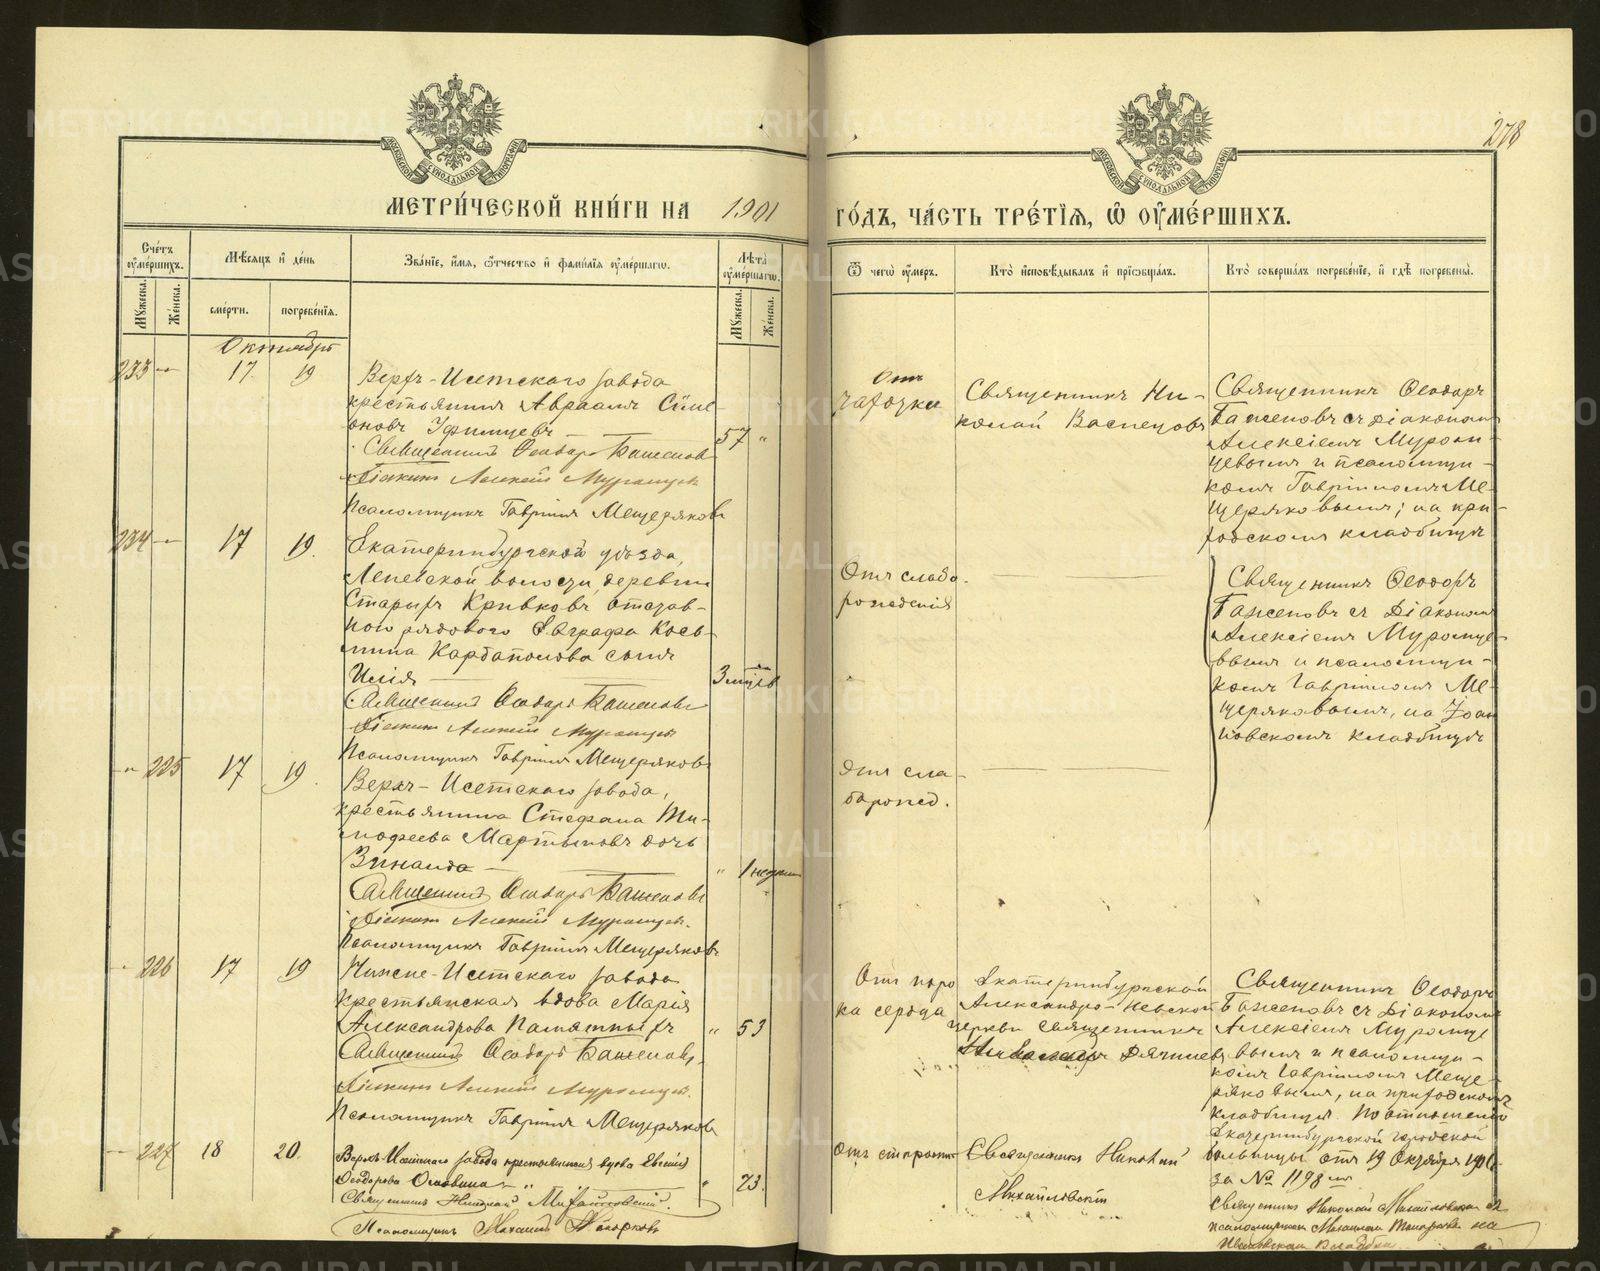 278
МОСКОВСКОЙ СѴНОДАЛЬНОЙ ТИПОГРАФІИ
МОСКОВСКОЙ СѴНОДАЛЬНОЙ ТИПОГРАФІИ
МЕТРИ́ЧЕСКОЙ КНИ́ГИ НА 1901
ГО́ДЪ, ЧА́СТЬ ТРЕ́ТІЯ, Ѿ ОУМЕ́РШИХЪ.
Счётъ оумершихъ.
Мѣсяцъ и день
Званіе, имя, отчество и фамилія оумершагѡ.
Лѣта оумершагѡ.
Мужеска.
Женска.
смерти.
погребенія.
Мужеска.
Женска.
Ѿ чегѡ оумеръ.
Кто исповѣдывалъ и пріобщалъ.
Кто совершалъ погребеніе, и гдѣ погребены.
Октябрь
233 — 17 19
Верхъ-Исетскаго завода
крестьянинъ Авраамъ Симе-
оновъ Уфимцевъ
57 "
Священникъ Ѳеодоръ Баженовъ
Діаконъ Алексій Муромцевъ
Псаломщикъ Гавріилъ Мещеряковъ
Отъ
чахотки
Священникъ Ни-
колай Васнецовъ
Священникъ Ѳеодоръ
Баженовъ съ діакономъ
Алексіемъ Муром-
цевымъ и псаломщи-
комъ Гавріиломъ Ме-
щеряковымъ; на при-
ходскомъ кладбищѣ
234 — 17 19.
Екатеринбургской уѣзда,
волости, деревни
Старыхъ Кривковъ отстав-
ного рядового Евграфа Козь-
мина Карбаполова сынъ
Илія
Священникъ Ѳеодоръ Баженовъ
Діаконъ Алексій Муромцевъ
Псаломщикъ Гавріилъ Мещеряковъ
Отъ слабо-
рожденія
Священникъ Ѳеодоръ
Баженовъ съ Діакономъ
Алексіемъ Муромце-
вымъ и псаломщи-
комъ Гавріиломъ Ме-
щеряковымъ, на Іоан-
новскомъ кладбищѣ
— " 225 17 19.
Верхъ-Исетскаго завода,
крестьянина Стефана Ти-
мофеева Мартыновъ дочь
Зинаида
" 1 недѣли
Священникъ Ѳеодоръ Баженовъ
Діаконъ Алексій Муромцевъ.
Псаломщикъ Гавріилъ Мещеряковъ
Отъ сла-
борожд.
226 17 19
Нижне-Исетскаго завода
крестьянская вдова Марія
Александрова Памятныхъ
" 53
Священникъ Ѳеодоръ Баженовъ.
Діаконъ Алексій Муромцевъ.
Псаломщикъ Гавріилъ Мещеряковъ
Отъ поро
ка сердца
Екатеринбургской
Александро-Невской
церкви Священникъ
Николай Дягилевъ
Священникъ Ѳеодоръ
Баженовъ съ Діакономъ
Алексіемъ Муромце
вымъ и псаломщи-
комъ Гавріиломъ Меще-
ряковымъ, на приходскомъ
кладбищѣ. По отношенію
Екатеринбургской городской
больницы отъ 19 Октября 1901
за № 1198мъ
227 18 20.
Верхъ-Исетскаго завода крестьянская вдова Евгенія
Ѳеодорова
" 73.
Священникъ Николай Михайловскій.
Псаломщикъ Михаилъ Топорковъ
Отъ старости
Священникъ Николай
Михайловскій
Священникъ Николай Михайловскій съ
псаломщикомъ Михаиломъ на